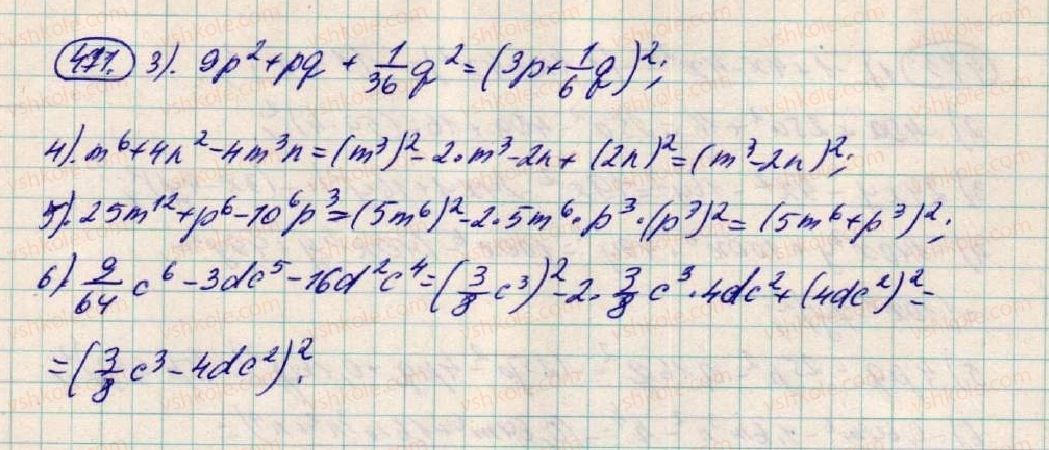 471. 3). 9p² + pq + 1/36 q² = (3p + 1/6 q)²;
4). m⁶ + 4n² - 4m³n = (m³)² - 2·m³ - 2n + (2n)² = (m³ - 2n)²;
5). 25m¹² + p⁶ - 10⁶p³ = (5m⁶)² - 2·5m⁶·p³·(p³)² = (5m⁶ + p³)²;
6). 9/64 c⁶ - 3dc⁵ - 16d²c⁴ = (3/8 c³)² - 2·3/8 c³·4dc² + (4dc²)² =
= (3/8 c³ - 4dc²)².